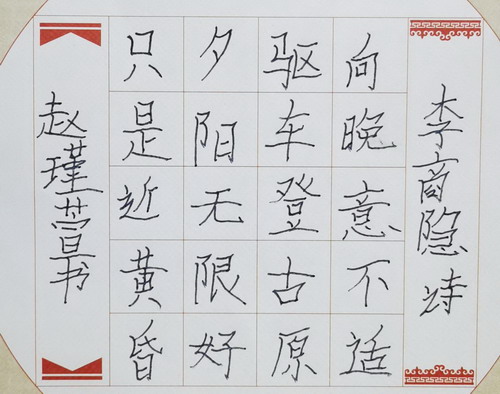 李商隐诗
向晚意不适
驱车登古原
夕阳无限好
只是近黄昏
赵瑾萱书